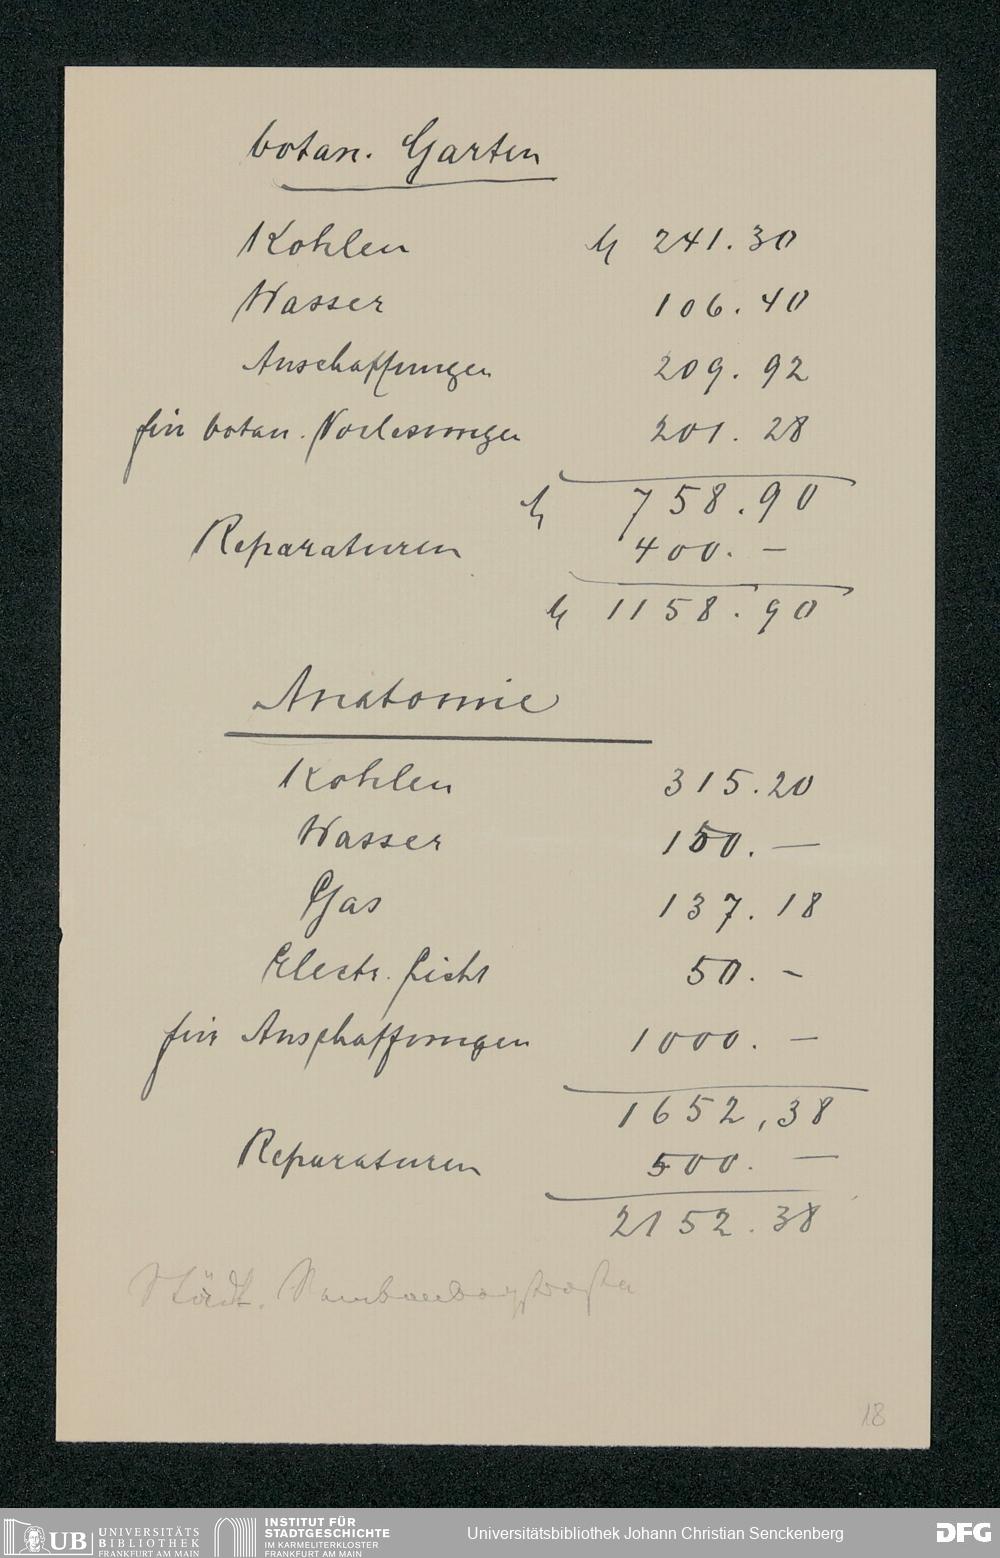 botan. Garten
Kohlen M 241.30
Wasser 106.40
Anschaffungen 209.92
für botan. Vorlesungen 201.28
M 758.90
Reparaturen 400.—
M 1158.90
Anatomie
Kohlen 315.20
Wasser 150.—
Gas 137.18
Electr. Licht 50.-
für Anschaffungen 1000.—
1652,38
Reparaturen 500.—
2152.38
Städt.
18
UB UNIVERSITÄTS
BIBLIOTHEK
FRANKFURT AM MAIN
INSTITUT FÜR
STADTGESCHICHTE
IM KARMELITERKLOSTER
FRANKFURT AM MAIN
Universitätsbibliothek Johann Christian Senckenberg
DFG